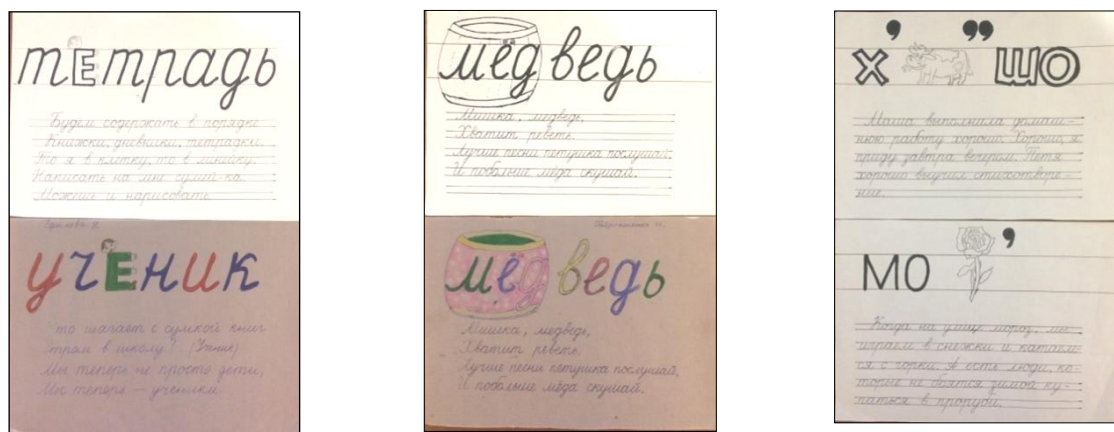 тЕтрадь
Будем содержать в порядке
Книжки, дневники, тетрадки.
То я в клетку, то в линейку.
Написать на мне сумей-ка.
Можешь и нарисовать.
учЕник
Что шагает с сумкой книг
Утром в школу? (Ученик)
Мы теперь не просто дети,
Мы теперь – ученики
мёдведь
Мишка, медведь,
Хватит реветь.
Лучше песни петушка послушай,
И побольше мёда скушай.
мёдведь
Мишка, медведь,
Хватит реветь.
Лучше песни петушка послушай,
И побольше мёда скушай.
х’ ”шо
Маша выполнила домаш-
нюю работу хорошо. Хорошо, я
приду завтра вечером. Петя
хорошо выучил стихотворе-
ние.
МО ’
Когда на улице мороз, мы
играем в снежки и катаем-
ся с горки. А есть люди, ко-
торые не боятся зимой ку-
паться в проруби.